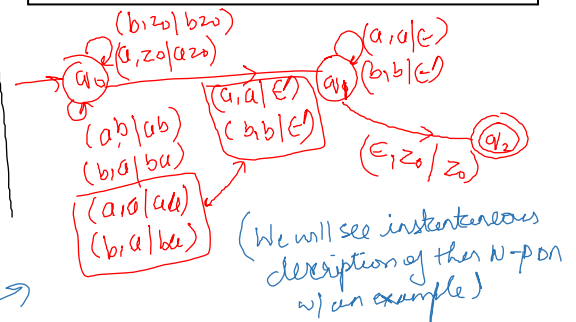 (b,z0|bz0)
(a,z0|az0)
q0
(a,a|ϵ)
(b,b|ϵ)
q1
(a,a|ϵ)
(b,b|ϵ)
q2
(ϵ,z0/z0)
(a,b|ab)
(b,a|ba)
(a,a|aa)
(b,a|ba)
(We will see instantaneous
description of this N-PDA
w/ an example)